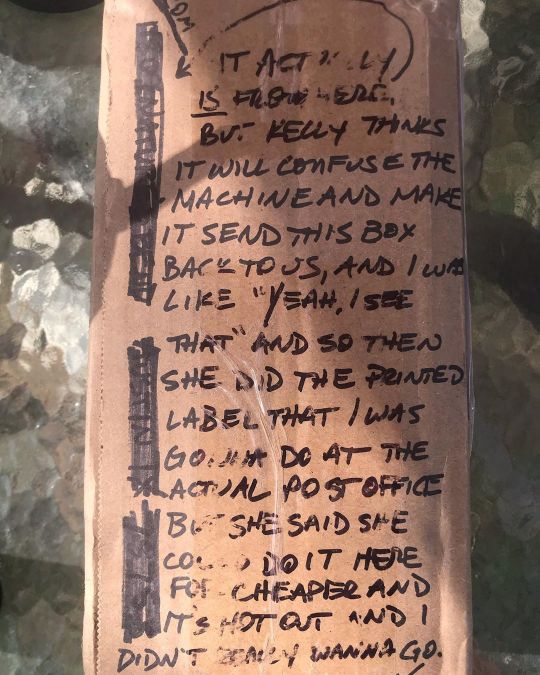 OM
IT ACTUALLY
IS FROM HERE,
BUT KELLY THINKS
IT WILL CONFUSE THE
MACHINE AND MAKE
IT SEND THIS BOX
BACK TO US, AND I WAS
LIKE "YEAH, I SEE
THAT" AND SO THEN
SHE DID THE PRINTED
LABEL THAT I WAS
GONNA DO AT THE
ACTUAL POST OFFICE
BUT SHE SAID SHE
COULD DO IT HERE
FOR CHEAPER AND
IT'S HOT OUT AND I
DIDN'T REALLY WANNA GO.